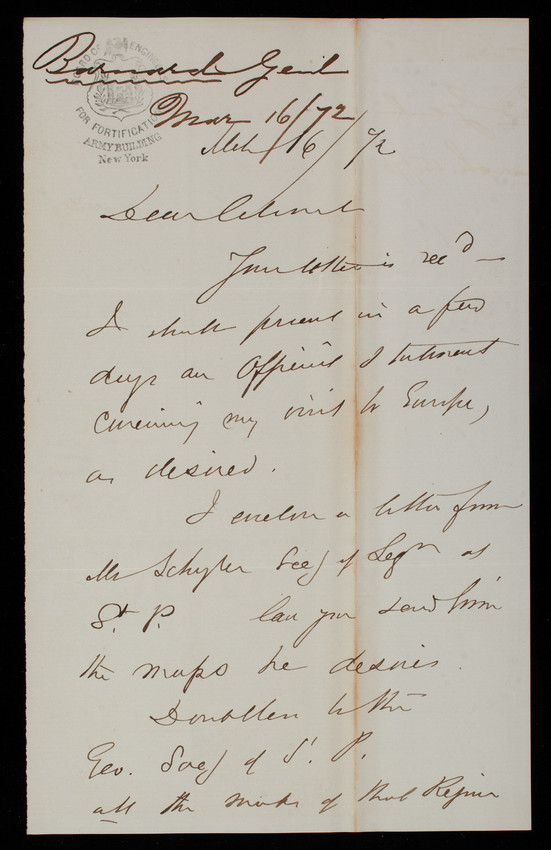 BOARD OF ENGINEERS
FOR FORTIFICATIONS
ARMY BUILDING
New York
Barnard Genl
Mar 16/72
Mch 16/72
Dear Colonel
Your letter is rec'd —
I shall present in a few
days an Official Statement
concerning my visit to Europe,
as desired.
I enclose a letter from
Mr Schuyler Secy of Legn at
St. P. Can you send him
the maps he desires.
Doubtless to the
Geo. Socy of St. P.
all the works of that